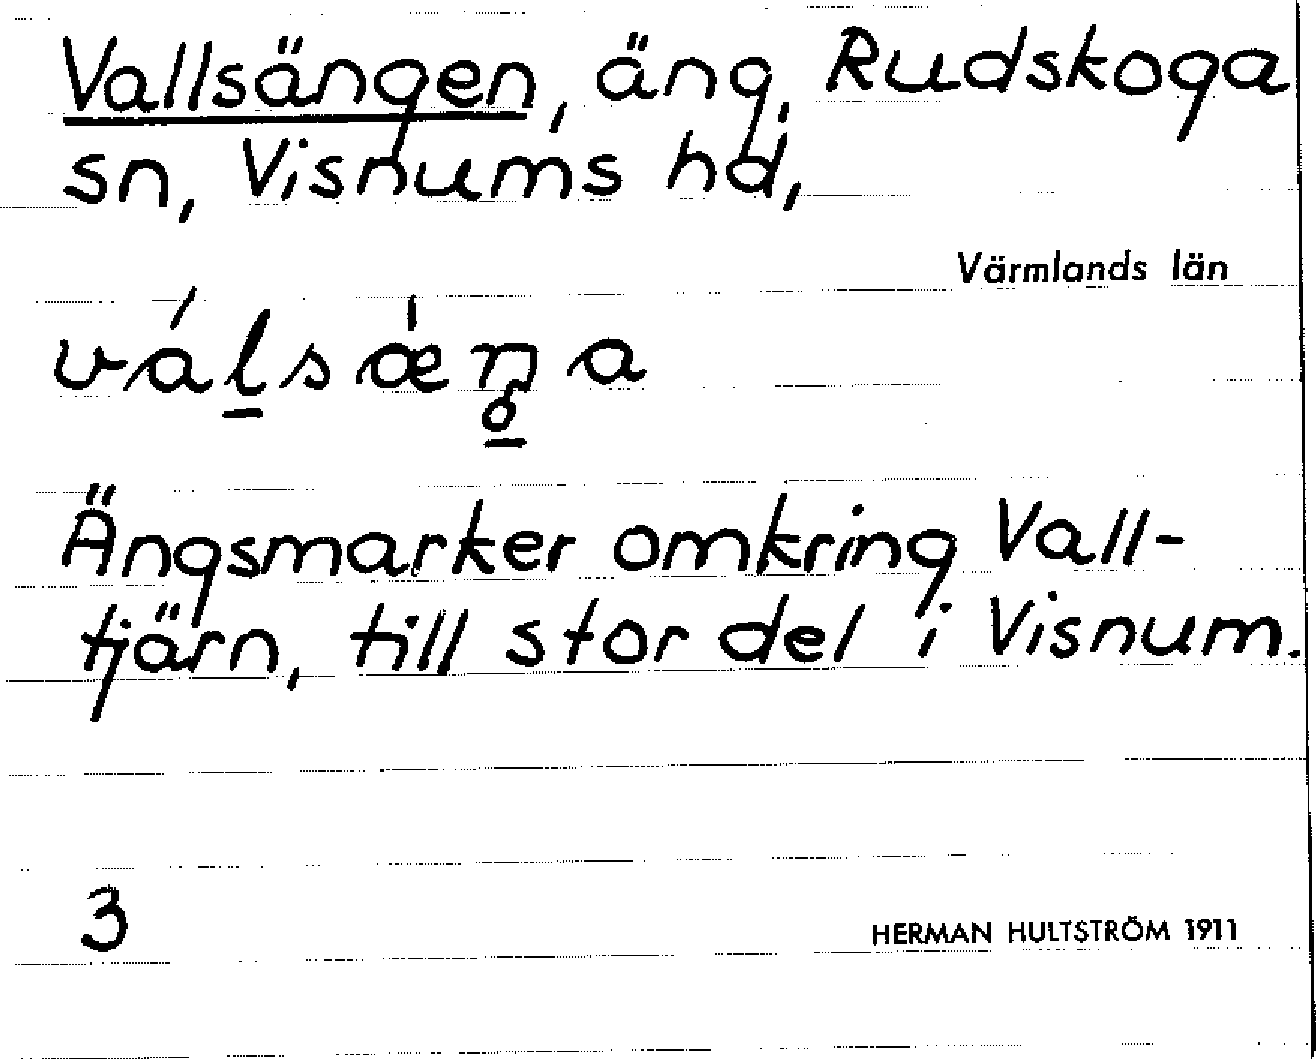 Vallsängen, äng, Rudskoga
sn, Visnums hd,
Värmlands län
válsǽŋa
Ängsmarker omkring Vall-
tjärn, till stor del i Visnum.
3
HERMAN HULTSTRÖM 1911